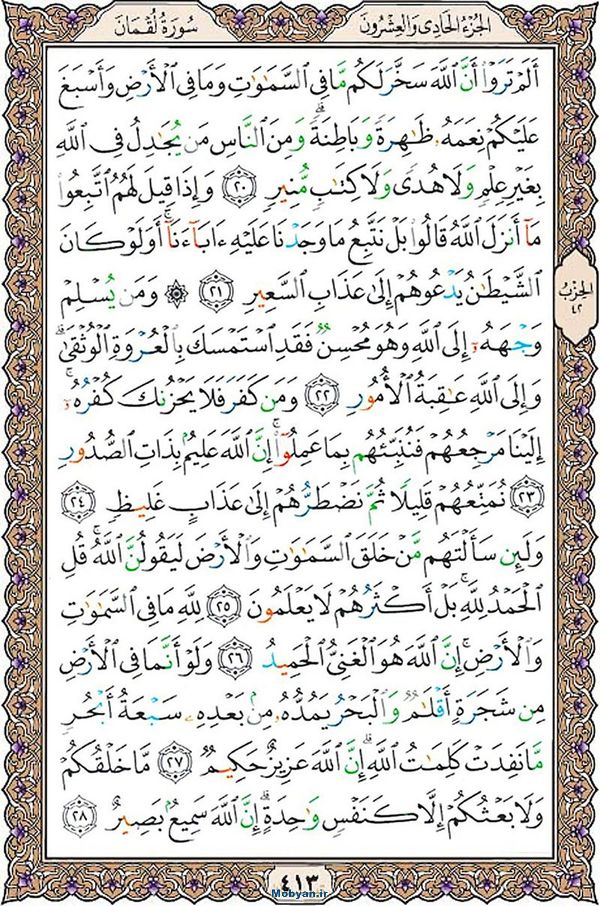 سُورَةُ لُقْمَانَ
الجُزْءُ الحَادِى وَالعِشْرُونَ
أَلَمْ تَرَوْا۟ أَنَّ ٱللَّهَ سَخَّرَ لَكُم مَّا فِى ٱلسَّمَـٰوَٰتِ وَمَا فِى ٱلْأَرْضِ وَأَسْبَغَ
عَلَيْكُمْ نِعَمَهُۥ ظَـٰهِرَةً وَبَاطِنَةً ۗ وَمِنَ ٱلنَّاسِ مَن يُجَـٰدِلُ فِى ٱللَّهِ
بِغَيْرِ عِلْمٍ وَلَا هُدًى وَلَا كِتَـٰبٍ مُّنِيرٍ ٢٠ وَإِذَا قِيلَ لَهُمُ ٱتَّبِعُوا۟
مَآ أَنزَلَ ٱللَّهُ قَالُوا۟ بَلْ نَتَّبِعُ مَا وَجَدْنَا عَلَيْهِ ءَابَآءَنَآ ۚ أَوَلَوْ كَانَ
ٱلشَّيْطَـٰنُ يَدْعُوهُمْ إِلَىٰ عَذَابِ ٱلسَّعِيرِ ٢١ ۞ وَمَن يُسْلِمْ
وَجْهَهُۥٓ إِلَى ٱللَّهِ وَهُوَ مُحْسِنٌ فَقَدِ ٱسْتَمْسَكَ بِٱلْعُرْوَةِ ٱلْوُثْقَىٰ ۗ
وَإِلَى ٱللَّهِ عَـٰقِبَةُ ٱلْأُمُورِ ٢٢ وَمَن كَفَرَ فَلَا يَحْزُنكَ كُفْرُهُۥٓ ۚ
إِلَيْنَا مَرْجِعُهُمْ فَنُنَبِّئُهُم بِمَا عَمِلُوٓا۟ ۚ إِنَّ ٱللَّهَ عَلِيمٌۢ بِذَاتِ ٱلصُّدُورِ
٢٣ نُمَتِّعُهُمْ قَلِيلًا ثُمَّ نَضْطَرُّهُمْ إِلَىٰ عَذَابٍ غَلِيظٍ ٢٤
وَلَئِن سَأَلْتَهُم مَّنْ خَلَقَ ٱلسَّمَـٰوَٰتِ وَٱلْأَرْضَ لَيَقُولُنَّ ٱللَّهُ ۚ قُلِ
ٱلْحَمْدُ لِلَّهِ ۚ بَلْ أَكْثَرُهُمْ لَا يَعْلَمُونَ ٢٥ لِلَّهِ مَا فِى ٱلسَّمَـٰوَٰتِ
وَٱلْأَرْضِ ۚ إِنَّ ٱللَّهَ هُوَ ٱلْغَنِىُّ ٱلْحَمِيدُ ٢٦ وَلَوْ أَنَّمَا فِى ٱلْأَرْضِ
مِن شَجَرَةٍ أَقْلَـٰمٌ وَٱلْبَحْرُ يَمُدُّهُۥ مِنۢ بَعْدِهِۦ سَبْعَةُ أَبْحُرٍ
مَّا نَفِدَتْ كَلِمَـٰتُ ٱللَّهِ ۗ إِنَّ ٱللَّهَ عَزِيزٌ حَكِيمٌ ٢٧ مَّا خَلْقُكُمْ
وَلَا بَعْثُكُمْ إِلَّا كَنَفْسٍ وَٰحِدَةٍ ۗ إِنَّ ٱللَّهَ سَمِيعٌۢ بَصِيرٌ ٢٨
الحِزْبُ
٤٢
٤١٣
Mobyan.ir